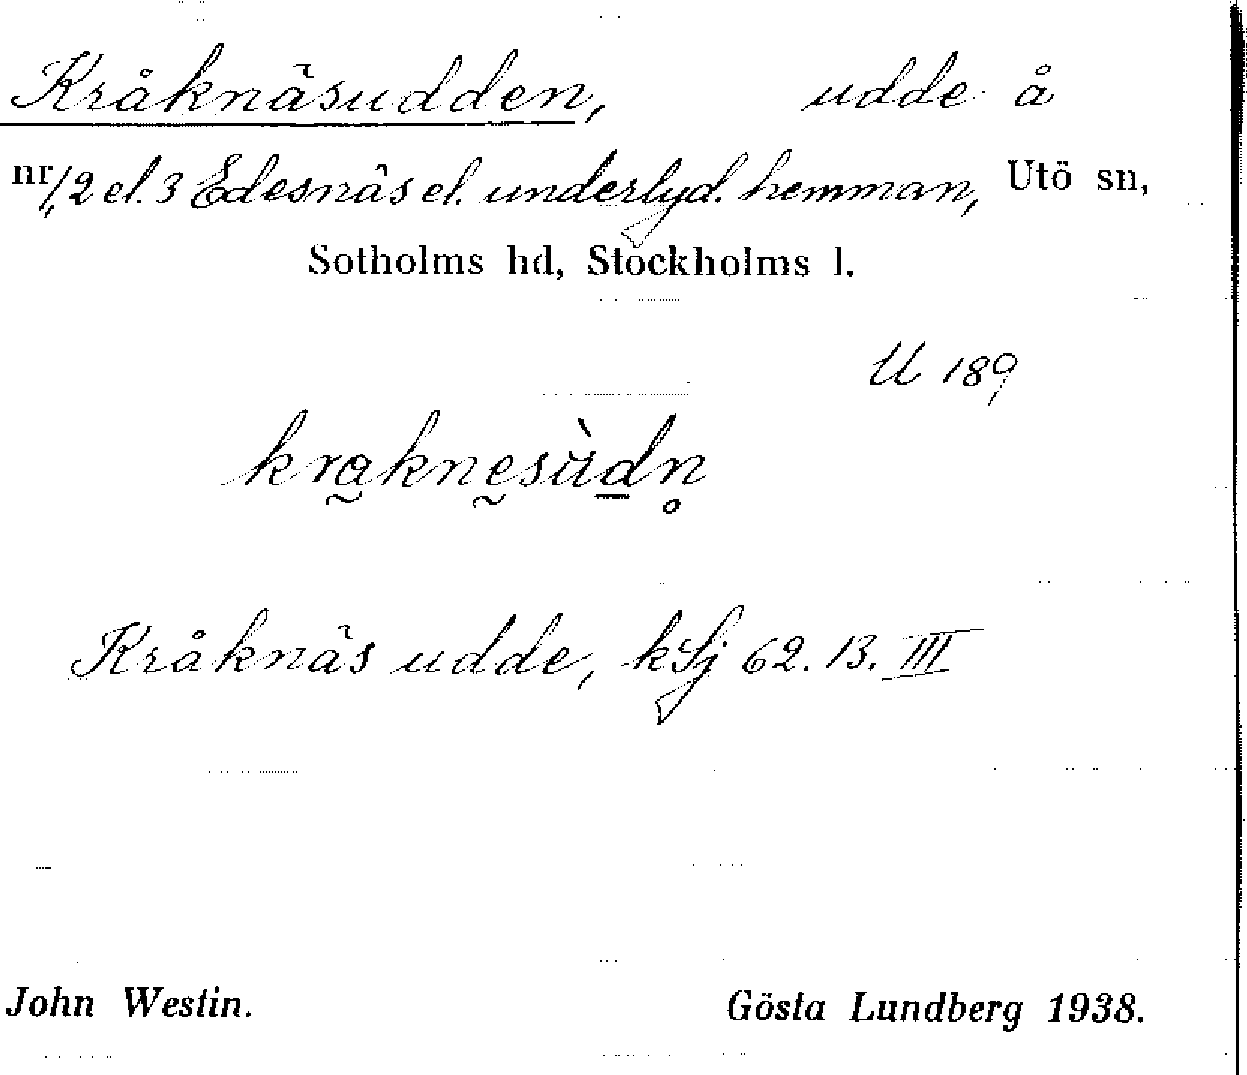 Kråknäsudden, udde å
nr 1, 2 el. 3 Edesnäs el. underlyd. hemman, Utö sn,
Sotholms hd, Stockholms l.
U 189
kra̰knḛsùd̲n̥
Kråknäs udde, kSj 62. 13. III
John Westin. Gösta Lundberg 1938.